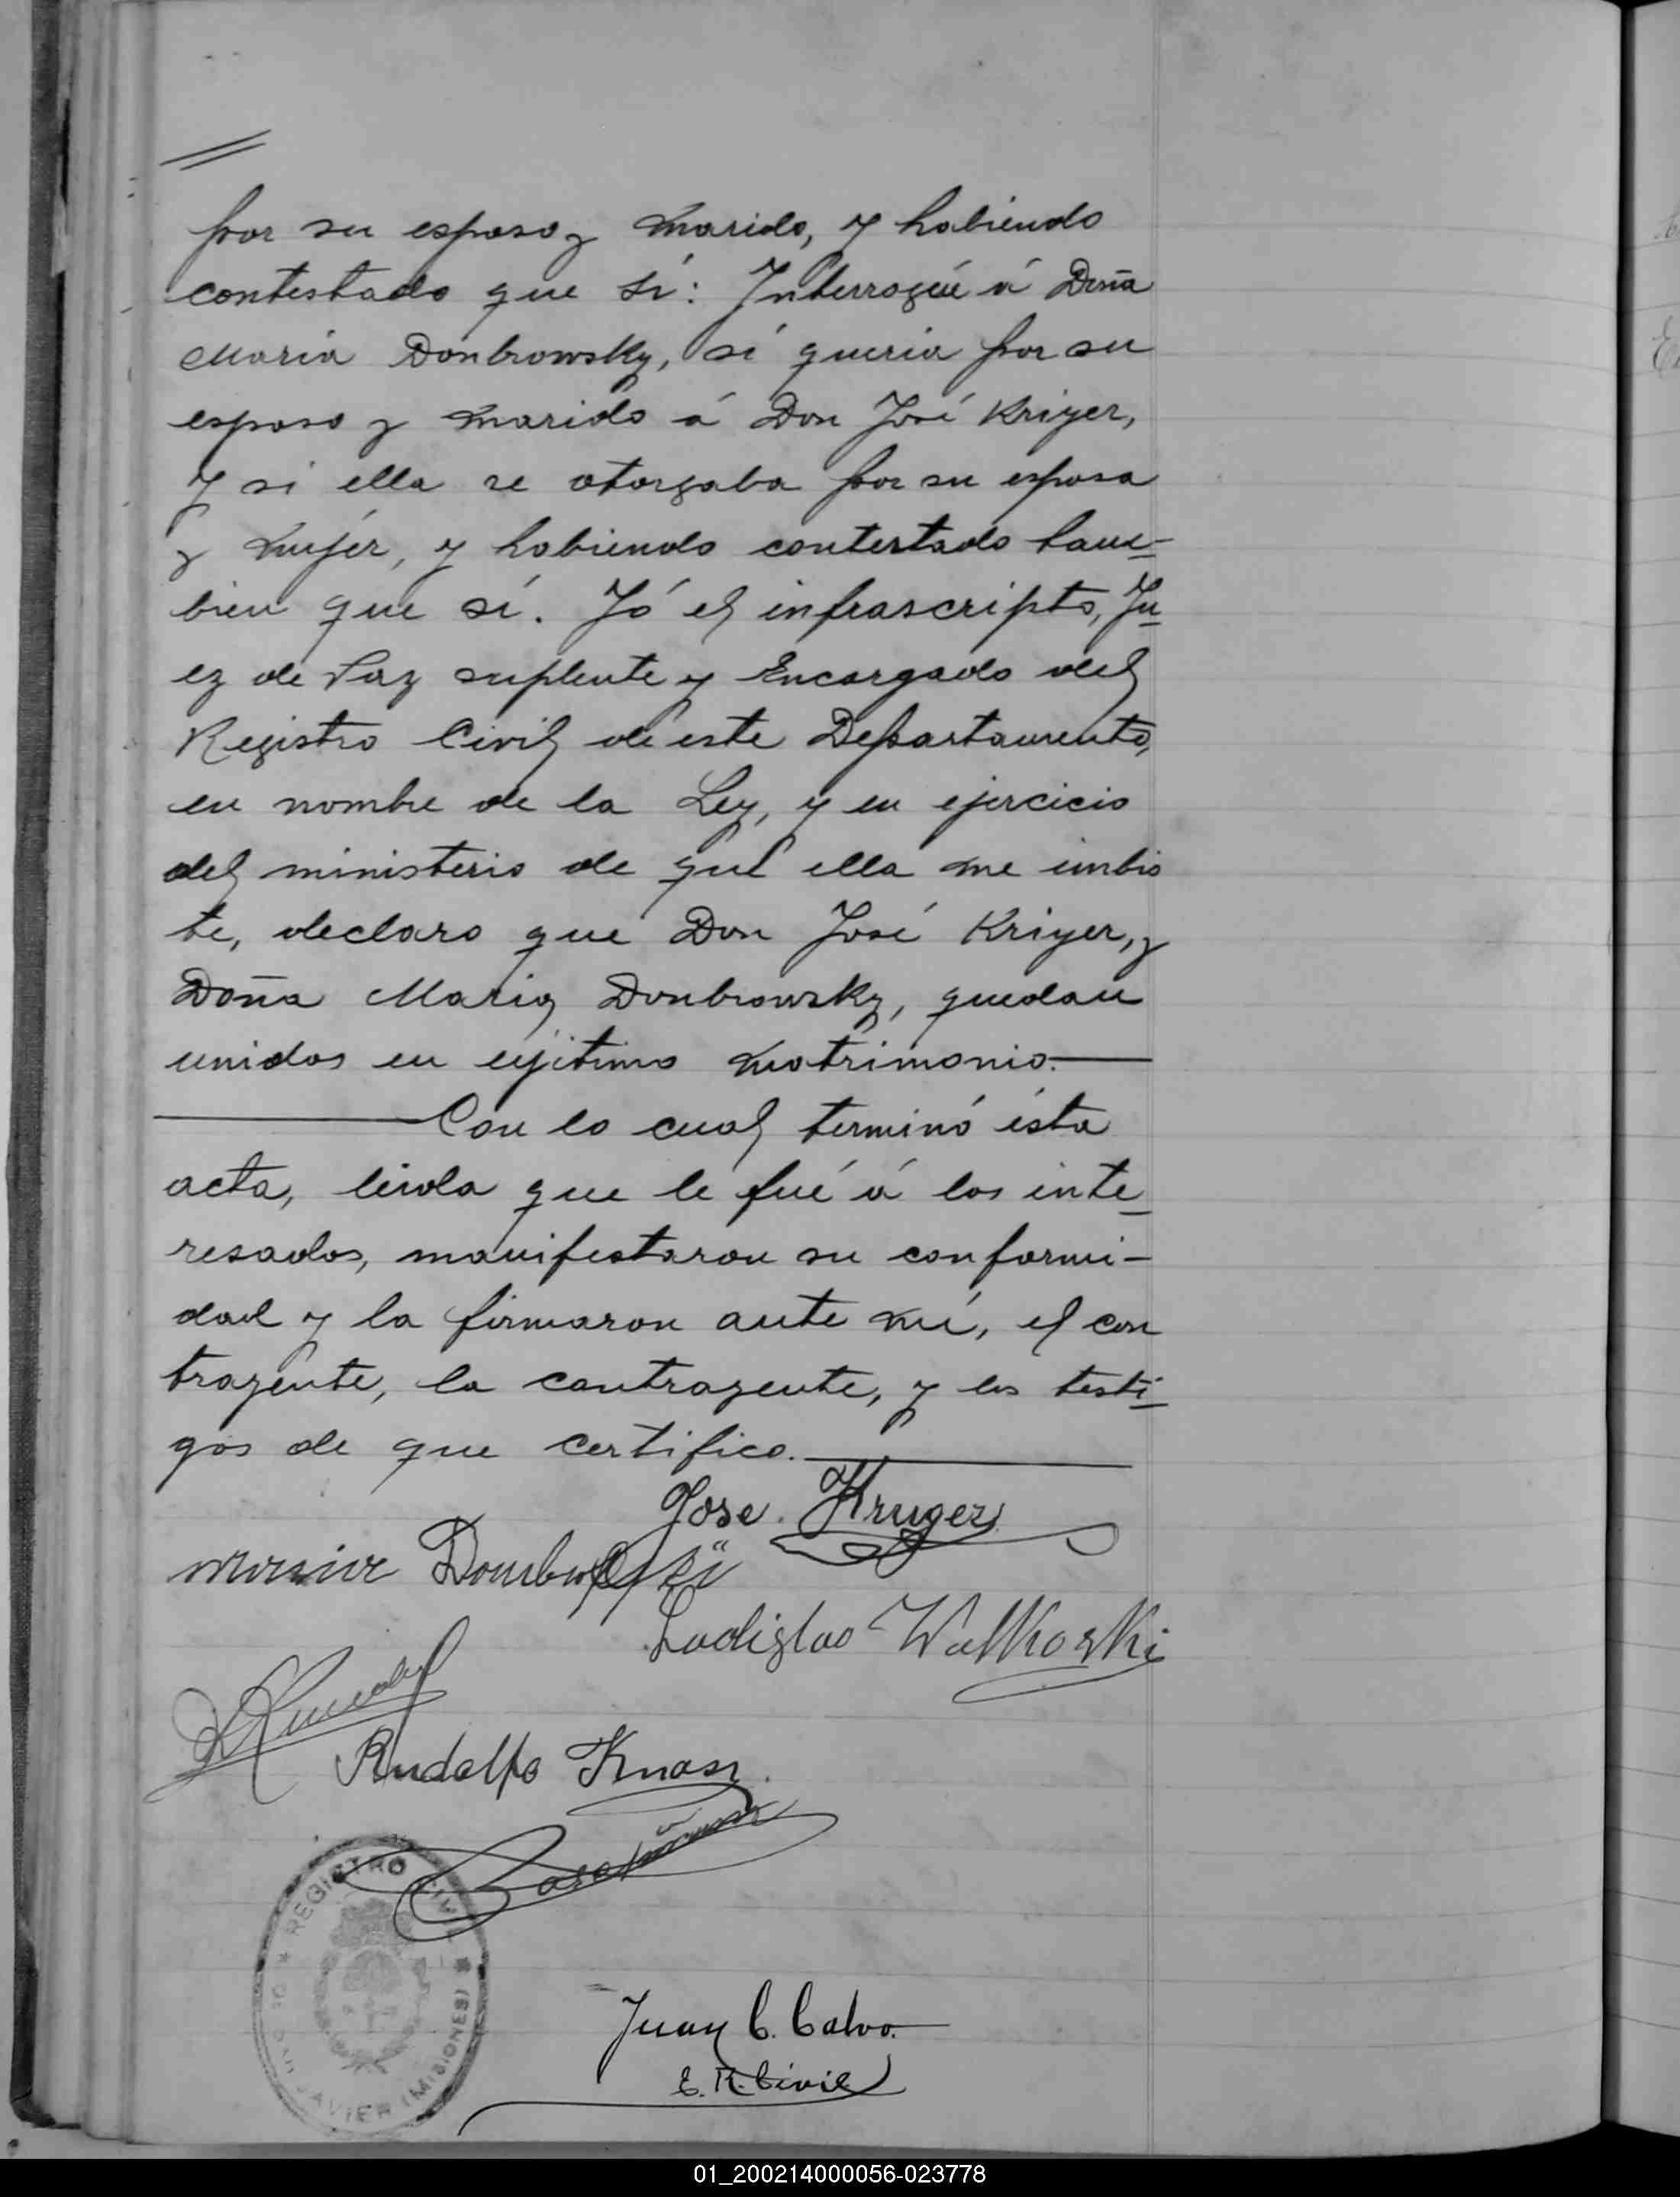 por su esposo y marido, y habiendo
contestado que sí: Interrogué á Doña
Maria Donbrowsky, si queria por su
esposo y marido á Don José Kriyer,
y si ella se otorgaba por su esposa
y mujér, y habiendo contestado tam-
bien que sí. Yó el infrascripto, Ju-
ez de Paz suplente y Encargado del
Registro Civil de este Departamento,
en nombre de la Ley, y en ejercicio
del ministerio de que ella me imbis
te, declaro que Don José Kriyer, y
Doña Maria Donbrowsky, quedan
unidos en lejitimo matrimonio.
Con lo cual terminó ésta
acta, leida que le fué á los inte-
resados, manifestaron su conformi-
dad y la firmaron ante mí, el con
trayente, la contrayente, y los testi-
gos de que certifico.
Jose. Kruger
Ladislao Walkoski
Rudolfo Knasz
REGISTRO CIVIL
SAN JAVIER (MISIONES)
Juan C. Calvo.
E. R. Civil
01_200214000056-023778